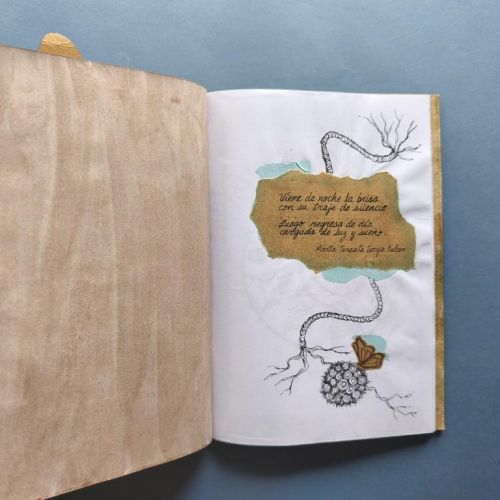 Viene de noche la brisa
con su traje de silencio
Luego regresa de día
cargada de luz y sueño.
María Teresita